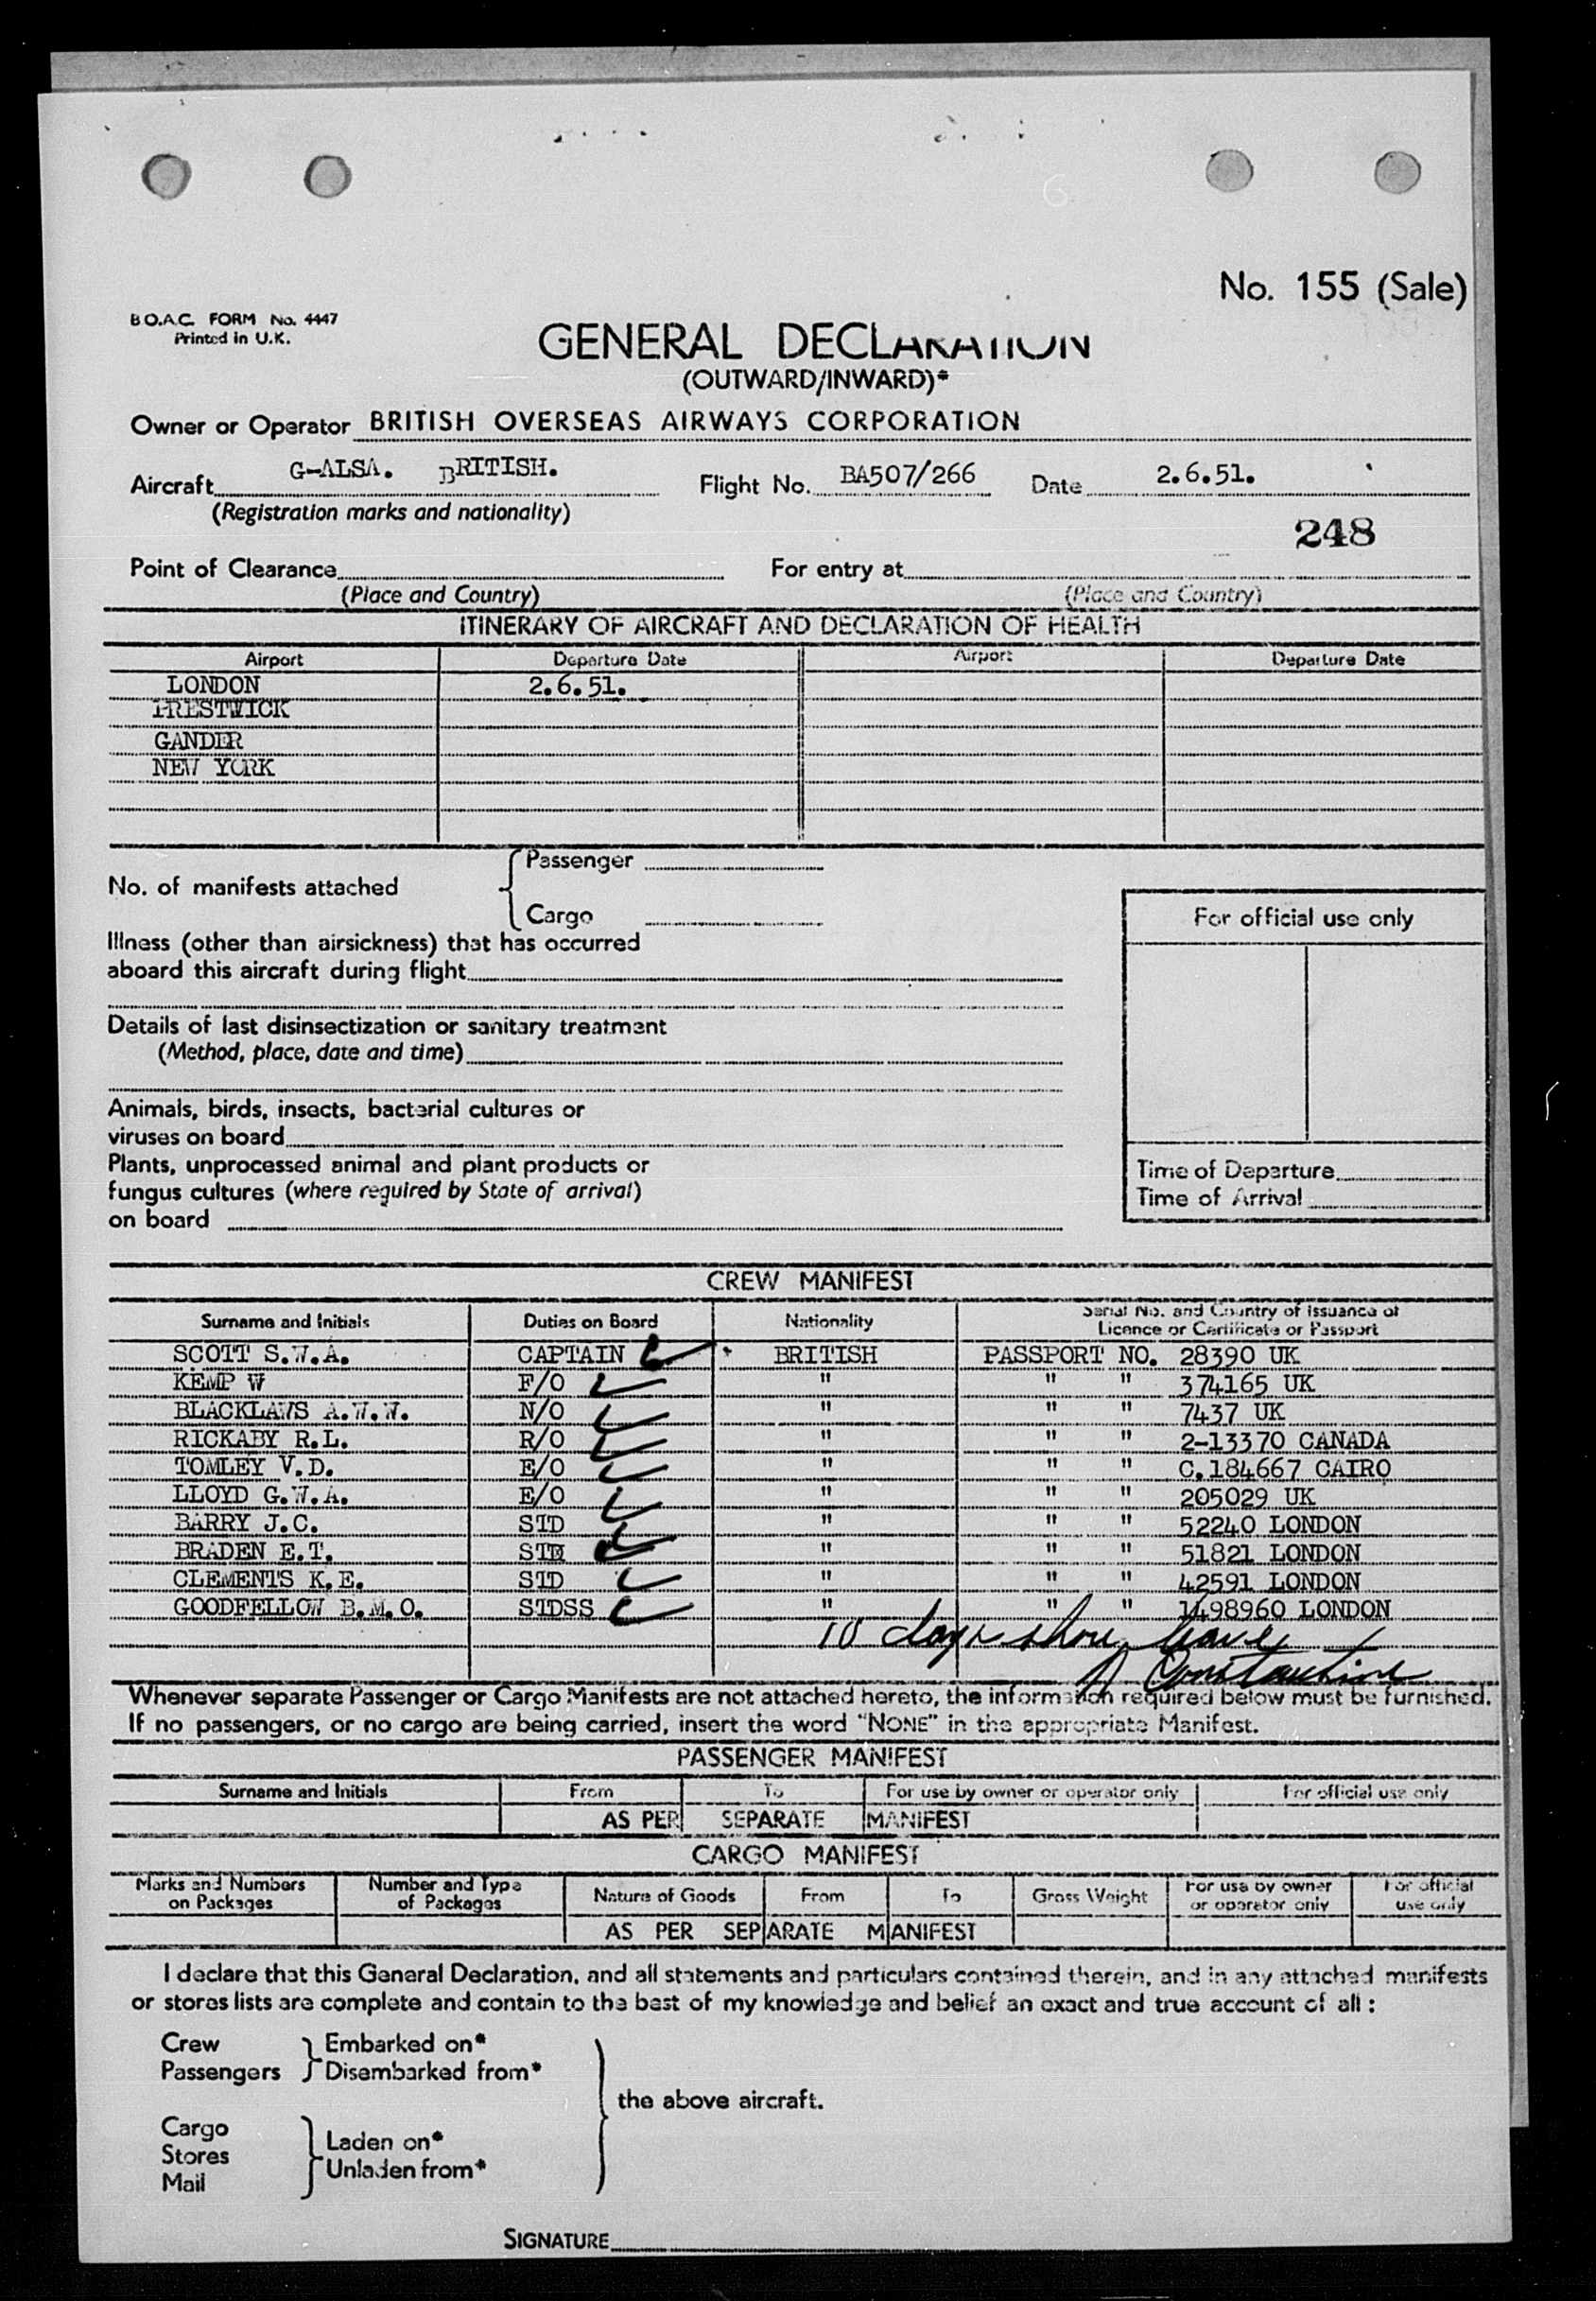 No. 155 (Sale)
B.O.A.C. FORM No. 4447
Printed in U.K.
GENERAL DECLARATION
(OUTWARD/INWARD)*
Owner or Operator BRITISH OVERSEAS AIRWAYS CORPORATION
Aircraft G-ALSA. BRITISH. Flight No. BA507/266 Date 2.6.51.
(Registration marks and nationality)
248
Point of Clearance For entry at
(Place and Country) (Place and Country)
ITINERARY OF AIRCRAFT AND DECLARATION OF HEALTH
Airport Departure Date Airport Departure Date
LONDON 2.6.51.
PRESTWICK
GANDER
NEW YORK
Passenger
No. of manifests attached
Cargo
For official use only
Illness (other than airsickness) that has occurred
aboard this aircraft during flight
Details of last disinsectization or sanitary treatment
(Method, place, date and time)
Animals, birds, insects, bacterial cultures or
viruses on board
Plants, unprocessed animal and plant products or
fungus cultures (where required by State of arrival)
on board
Time of Departure
Time of Arrival
CREW MANIFEST
Surname and Initials Duties on Board Nationality Serial No. and Country of issuance of
Licence or Certificate or Passport
SCOTT S.W.A. CAPTAIN BRITISH PASSPORT NO. 28390 UK
KEMP W F/O " " " 374165 UK
BLACKLAWS A.W.W. N/O " " " 7437 UK
RICKABY R.L. R/O " " " 2-13370 CANADA
TOMLEY V.D. E/O " " " C.184667 CAIRO
LLOYD G.W.A. E/O " " " 205029 UK
BARRY J.C. STD " " " 52240 LONDON
BRADEN E.T. STD " " " 51821 LONDON
CLEMENTS K.E. STD " " " 42591 LONDON
GOODFELLOW B.M.O. STDSS " " " 1498960 LONDON
10 days shore leave
Constantine
Whenever separate Passenger or Cargo Manifests are not attached hereto, the information required below must be furnished.
If no passengers, or no cargo are being carried, insert the word "NONE" in the appropriate Manifest.
PASSENGER MANIFEST
Surname and Initials From To For use by owner or operator only For official use only
AS PER SEPARATE MANIFEST
CARGO MANIFEST
Marks and Numbers on Packages Number and Type of Packages Nature of Goods From To Gross Weight For use by owner or operator only For official use only
AS PER SEPARATE MANIFEST
I declare that this General Declaration, and all statements and particulars contained therein, and in any attached manifests
or stores lists are complete and contain to the best of my knowledge and belief an exact and true account of all :
Crew Embarked on*
Passengers Disembarked from*
the above aircraft.
Cargo
Stores Laden on*
Mail Unladen from*
SIGNATURE